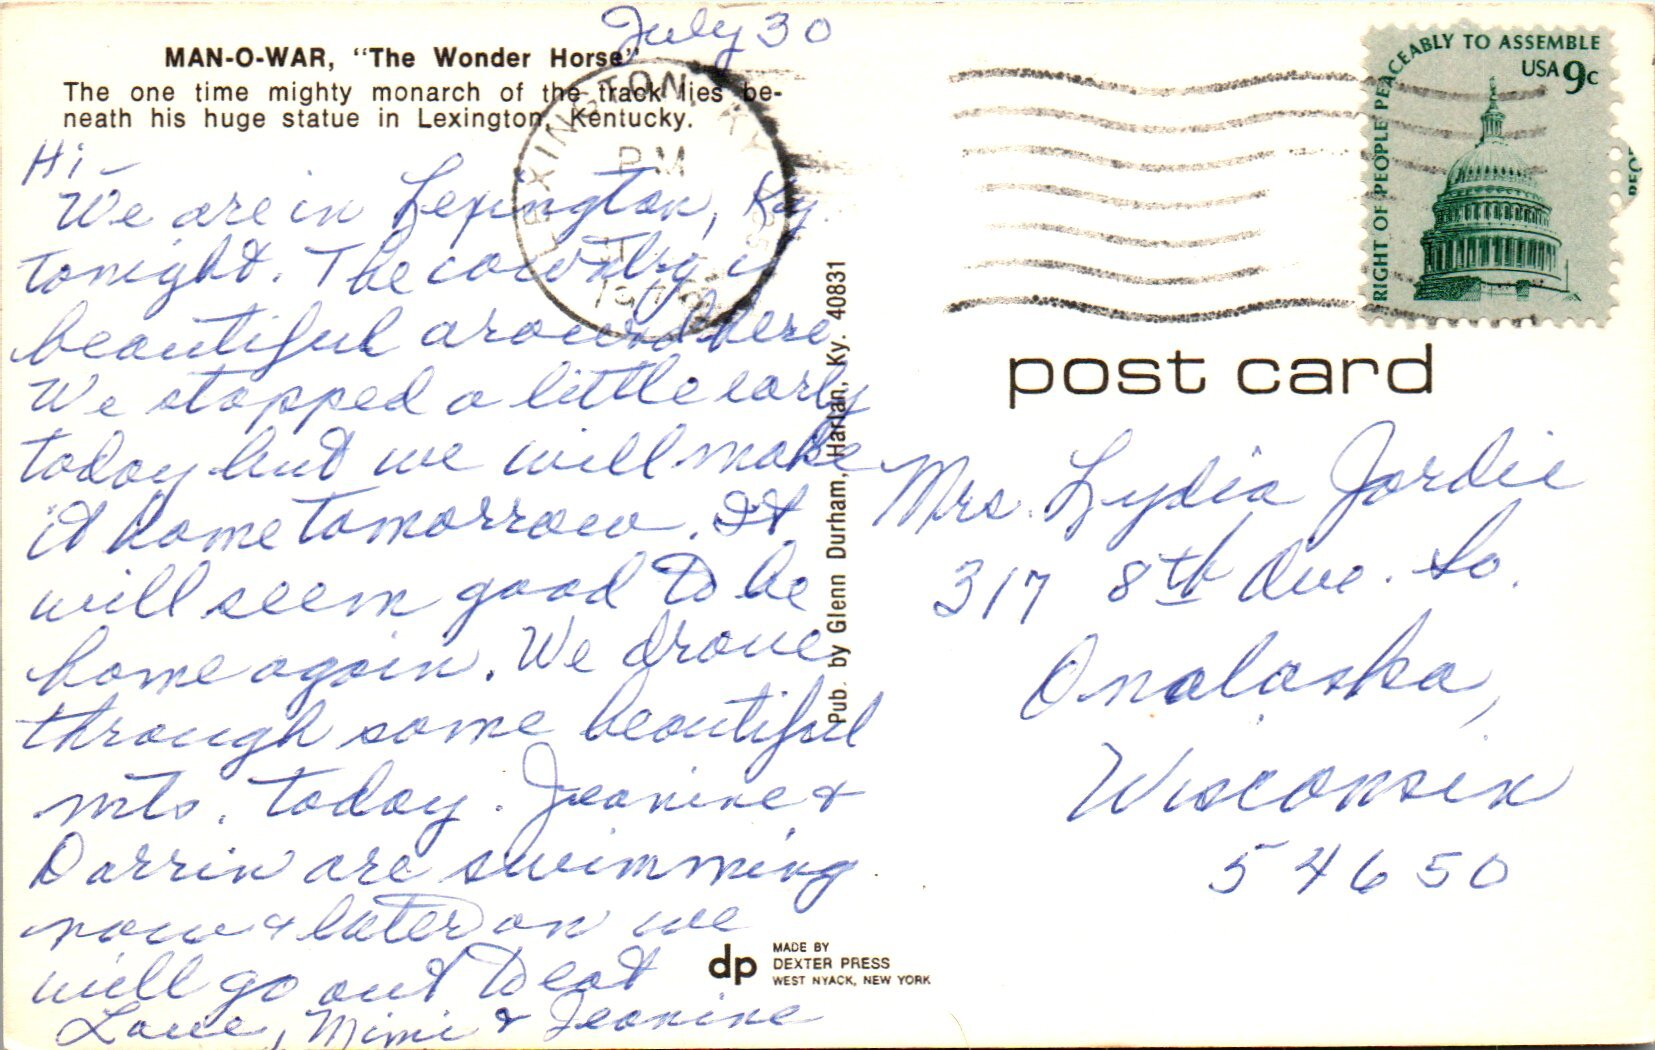 July 30
MAN-O-WAR, "The Wonder Horse"
The one time mighty monarch of the track lies be-
neath his huge statue in Lexington, Kentucky.
Hi -
We are in Lexington, Ky.
tonight. The country is
beautiful around here
We stopped a little early
today but we will make
it home tomorrow. It
will seem good to be
home again. We drove
through some beautiful
mts. today. Jeanine &
Darrin are swimming
now & later on we
will go out to eat
Love, Mimi & Jeanine
Pub. by Glenn Durham, Harlan, Ky. 40831
dp
MADE BY
DEXTER PRESS
WEST NYACK, NEW YORK
LEXINGTON, KY
PM
RIGHT OF PEOPLE PEACEABLY TO ASSEMBLE
USA 9c
post card
Mrs. Lydia Jordie
317 8th Ave. So.
Onalaska,
Wisconsin
54650